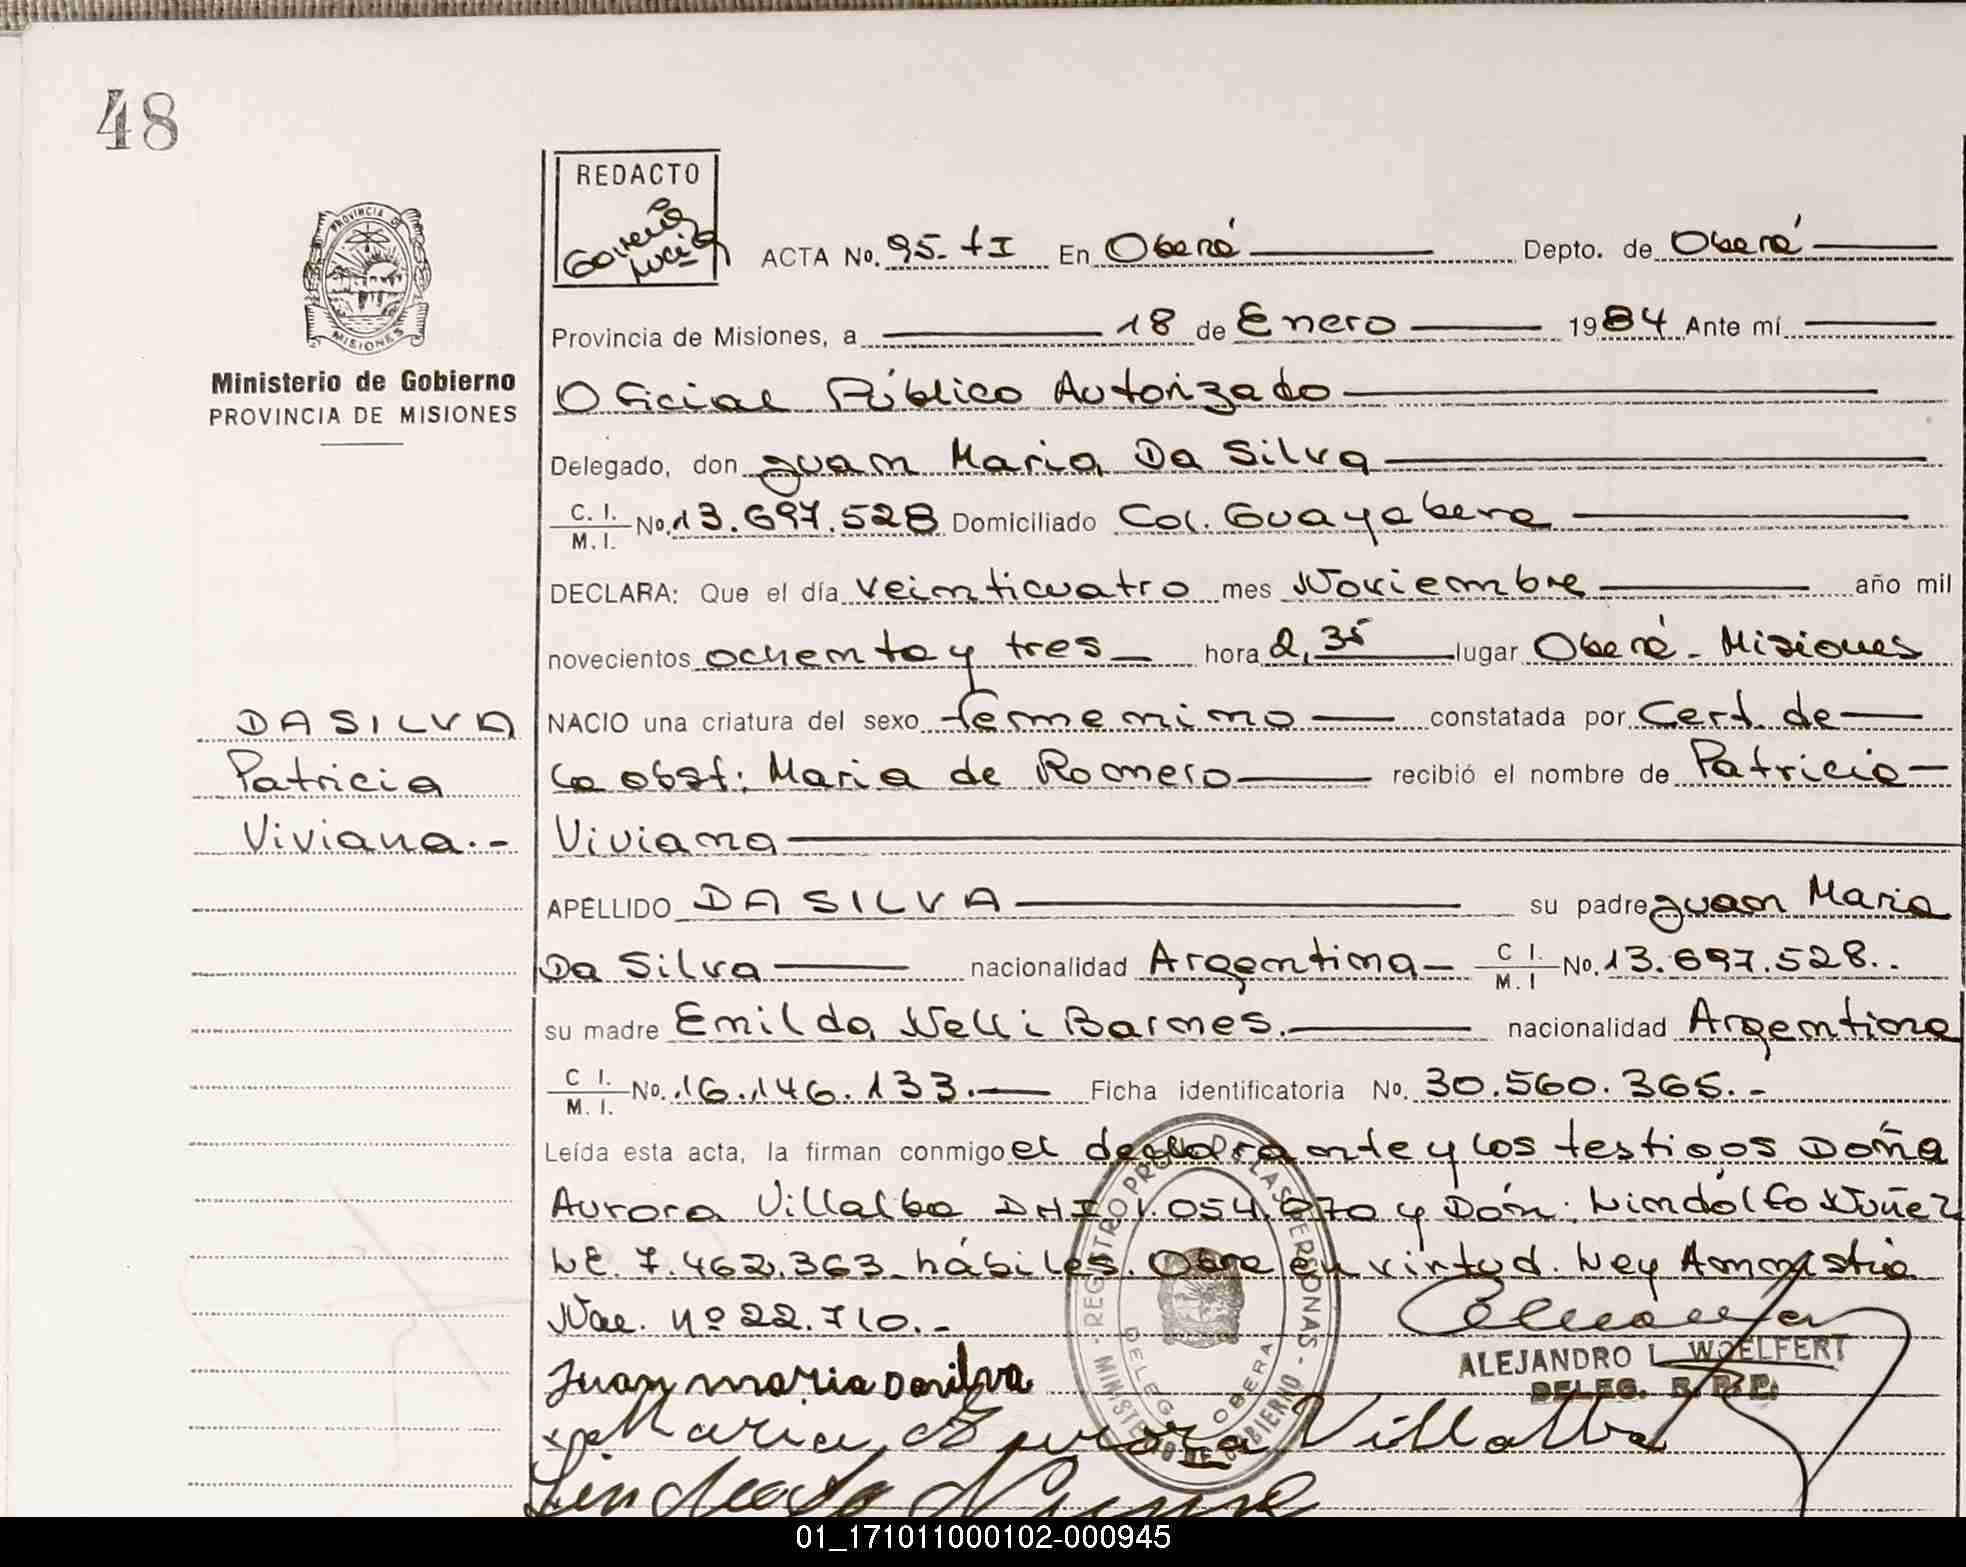 48
REDACTO
ACTA No. 95- tI En Oberá Depto. de Oberá
Provincia de Misiones, a 18 de Enero 1984 Ante mí
Ministerio de Gobierno
PROVINCIA DE MISIONES
Oficial Público Autorizado
Delegado, don Juan Maria Da Silva
C. I. M. I. No. 13.697.528 Domiciliado Col. Guayabera
DECLARA: Que el día veinticuatro mes Noviembre año mil
novecientos ochenta y tres hora 2,35 lugar Oberá - Misiones
DA SILVA
Patricia
Viviana.-
NACIO una criatura del sexo femenino constatada por Cert. de
la obst: Maria de Romero recibió el nombre de Patricia
Viviana
APELLIDO DA SILVA su padre Juan Maria
Da Silva nacionalidad Argentina C I. M. I No. 13.697.528..
su madre Emilda Nelli Barnes. nacionalidad Argentina
C I. M. I. No. 16.146.133. Ficha identificatoria No. 30.560.365.-
Leída esta acta, la firman conmigo el declarante y los testigos Doña
Aurora Villalba DNI 1.054.870 y Dón: Lindólfo Nuñez
LE. 7.462.363 hábiles. Obra en virtud. Ley Amnistia
Nac. nº 22.710.-
ALEJANDRO L. WOELFERT
DELEG. R. P. P.
Juan maria Dasilva
Maria Aurora Villalba
REGISTRO PROV. DE LAS PERSONAS - MINISTERIO DE GOBIERNO -
DELEG. OBERA
PROVINCIA DE
MISIONES
01_171011000102-000945